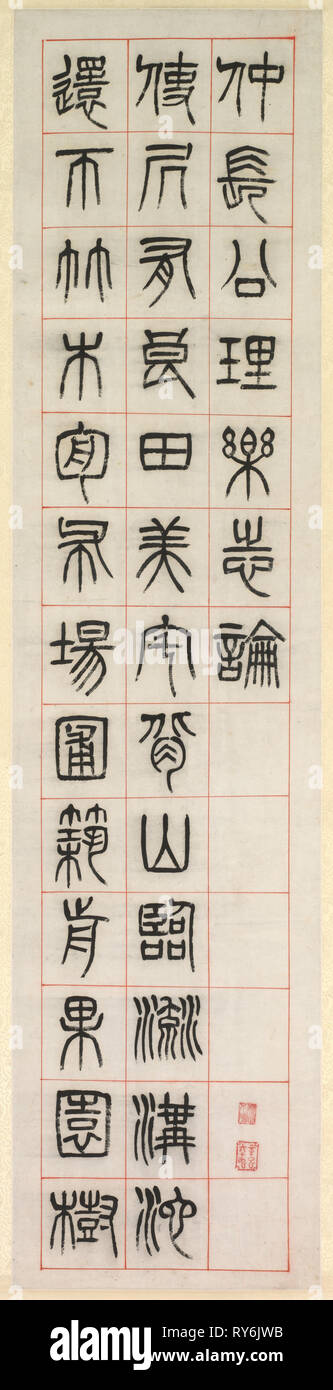 仲長公理樂志論
使凥有良田美宅背山臨流溝池
還帀竹木周布場圃築前果園樹
alamy
Image ID: RY6JWB
www.alamy.com